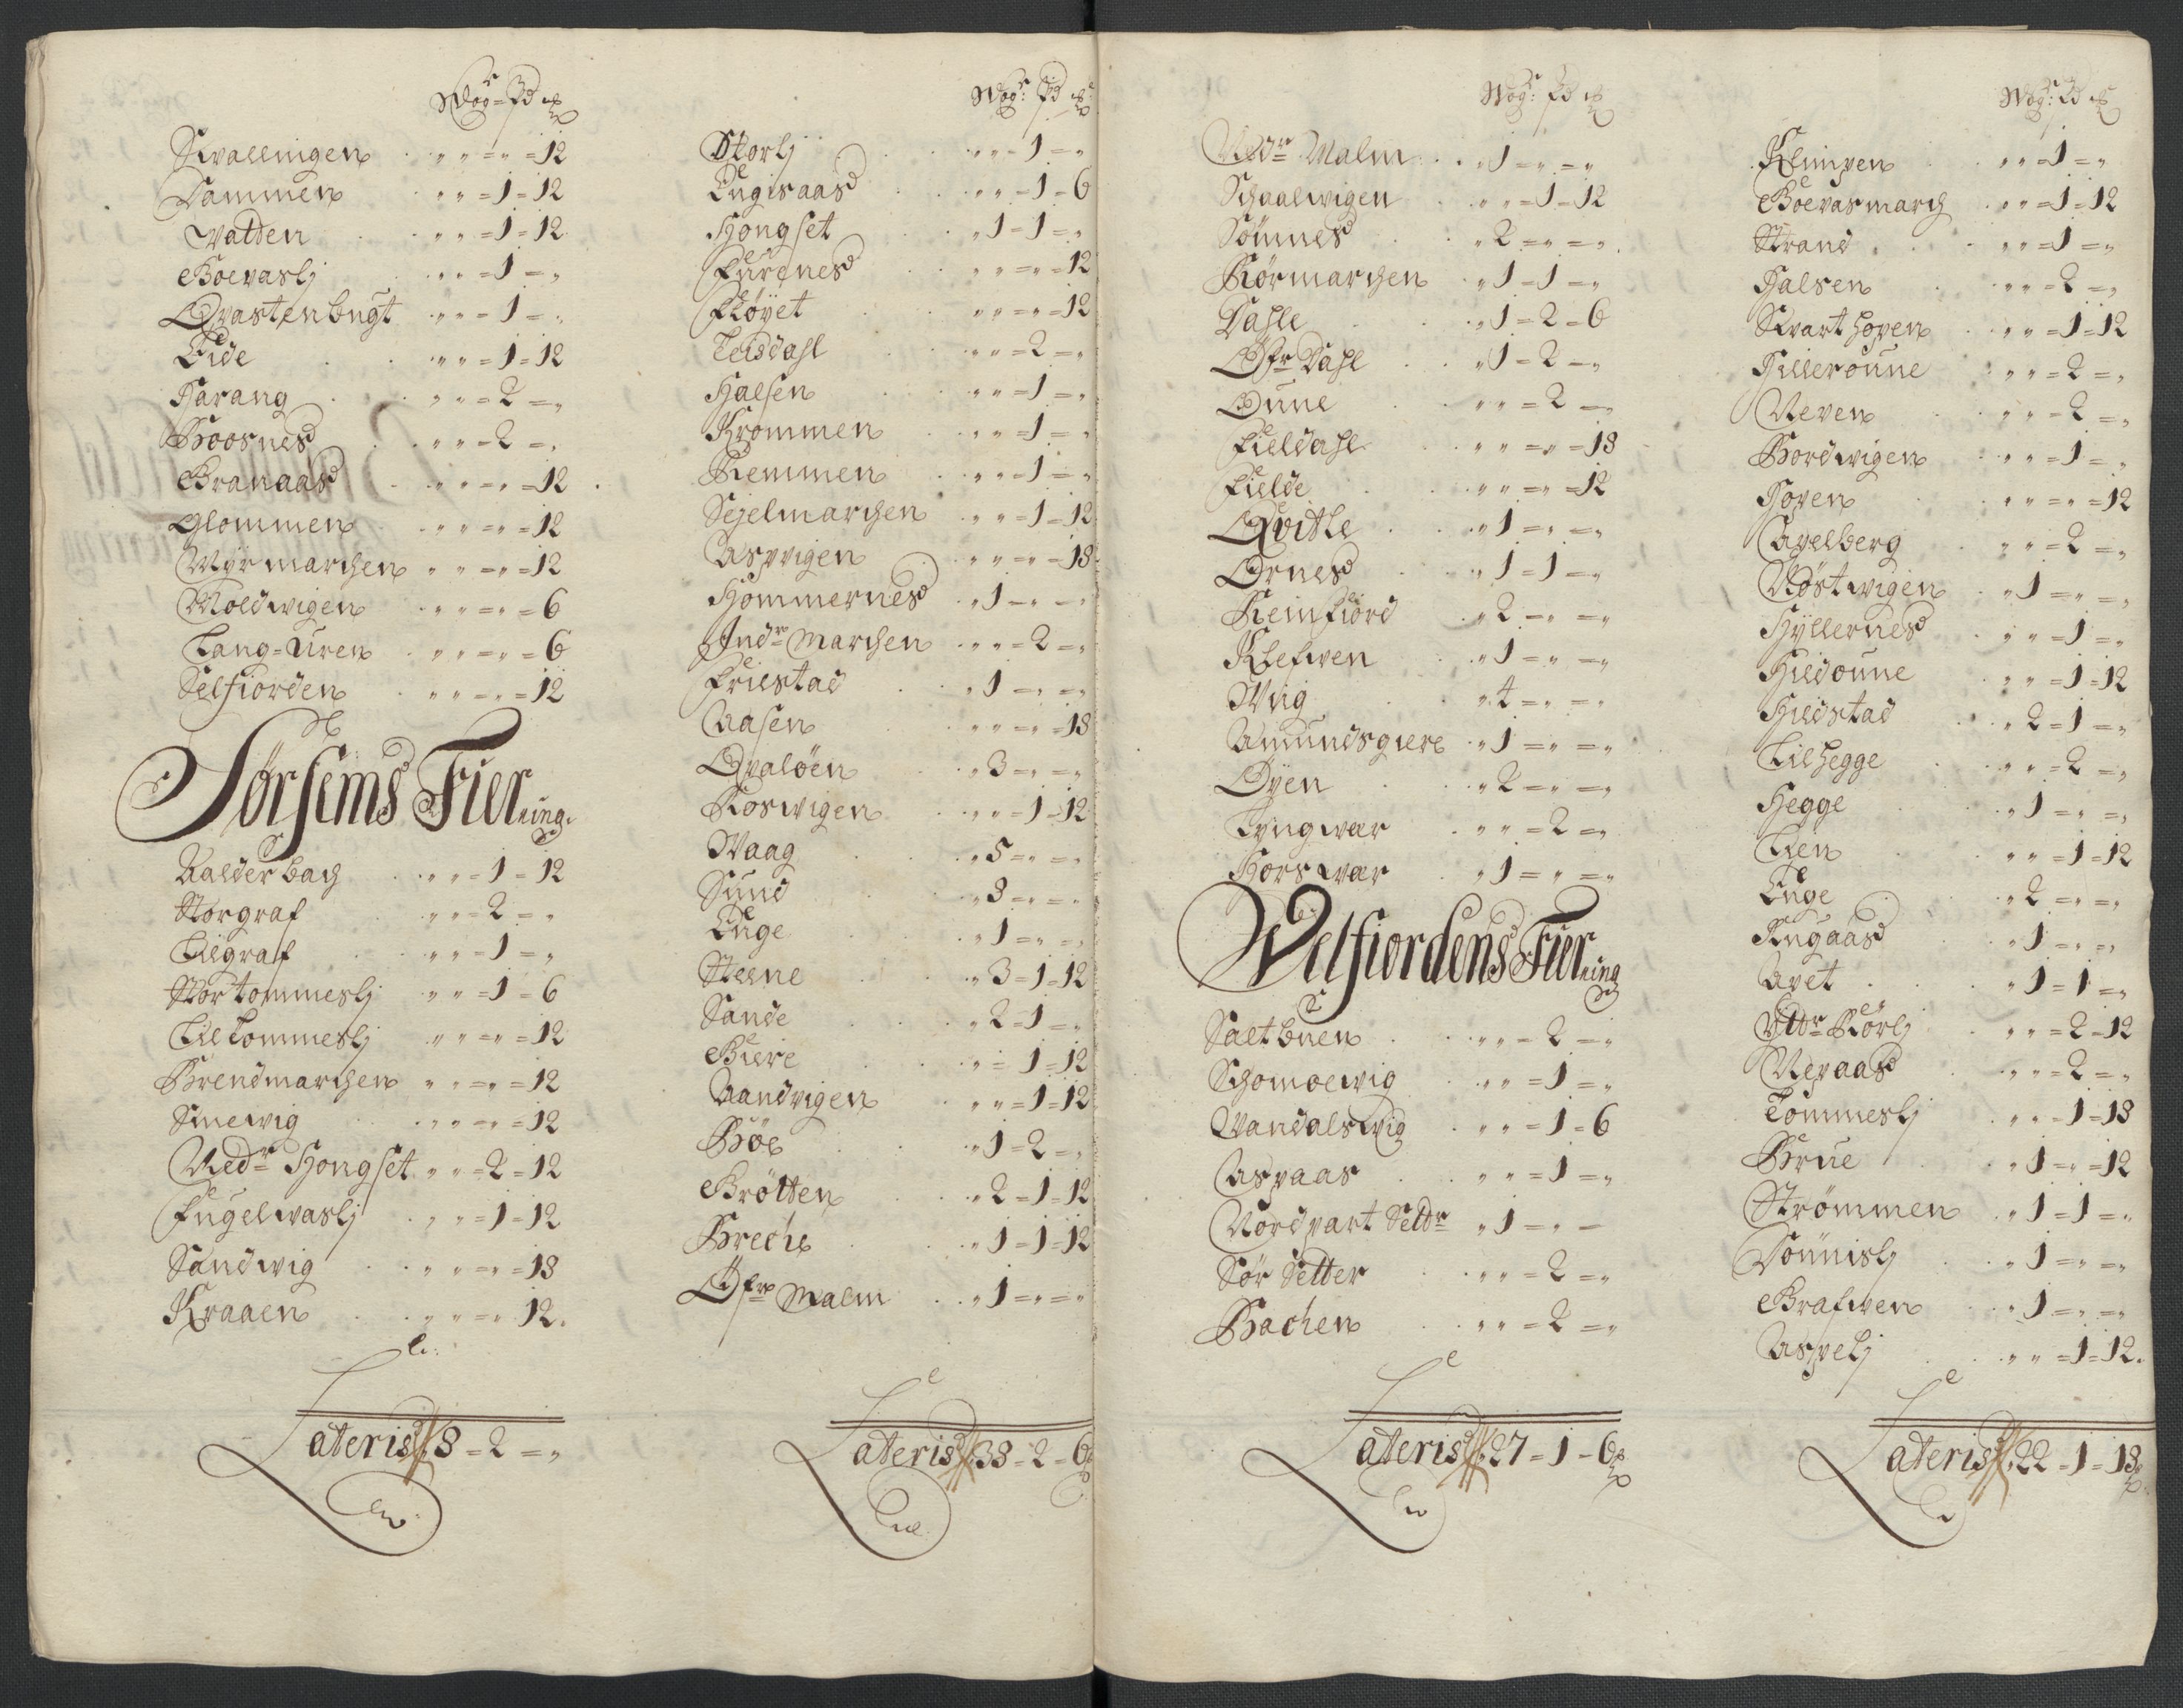 Wog = Pd
Svallingen „ „ = „ = 12
Dammen „ „ = 1 = 12
Vatten „ „ = 1 = 12
Boevaslj „ „ = 1 = „
Qvastenbugt „ „ = 1 = „
Eide „ „ = 1 = 12
Harang „ „ = 2 = „
Hoosnes „ „ = 2 = „
Granaas „ „ = „ = 12
Glommen „ „ = „ = 12
Myrmarchen „ „ = „ = 12
Moldwigen „ „ = „ = 6
Lang=Uren „ „ = „ = 6
Selfiorden „ „ = „ = 12
Sørsems Fierring.
Aalderbach „ „ = 1 = 12
Storgraf „ „ = 2 = „
Lilgraf „ „ = 1 = „
Stortommeslj „ „ = 1 = 6
Liltommeslj „ „ = „ = 12
Brendmarchen „ „ = „ = 12
Smevig „ „ = „ = 12
Nedr Hongset „ „ = 2 = 12
Fugelvaslj „ „ = 1 = 12
Sandwig „ „ = „ = 18
Kraaen „ „ = „ 12.
Lateris 8 = 2 = „
Wog: Pd
Storlj „ „ = 1 = „
Engisaas „ „ = 1 = 6
Hongset „ 1 = 1 = „
Furenes „ „ = „ = 12
Fløyet „ „ = „ = 12
Teisdahl „ „ = 2 = „
Halsen „ „ = 1 = „
Krommen „ „ = 1 = „
Remmen „ „ = 1 = „
Sejelmarchen „ „ = 1 = 12
Aspvigen „ „ = „ = 18
Hommernes „ 1 = „ = „
Indr Marchen „ „ = 2 = „
Frilstad „ 1 = „ = „
Aasen „ „ = „ = 18
Qvaløen „ 3 = „ = „
Roswigen „ „ = 1 = 12
Waag „ 5 = „ = „
Sund „ 8 = „ = „
Enge „ 1 = „ = „
Steene „ 3 = 1 = 12
Sande „ 2 = 1 = „
Biere „ = 1 = 12
Aandvigen „ „ = 1 = 12
Bøe „ 1 = 2 = „
Brøtten „ 2 = 1 = 12
Breche „ 1 = 1 = 12
Øfre Malm „ 1 = „ = „
Lateris 38 = 2 = 6
Wog: Pd
Nedr Malm „ 1 = „ = „
Schaalwigen „ „ = 1 = 12
Sømnes „ 2 = „ = „
Rørmarchen „ 1 = 1 = „
Dahle „ 1 = 2 = 6
Øfr Dahl „ 1 = 2 = „
Oune „ „ = 2 = „
Fieldahl „ „ = „ = 18
Fielde „ „ = „ = 12
Qvitle „ 1 = „ = „
Ørnes „ 1 = 1 = „
Reinfiord „ 2 = „ = „
Klefwen „ 1 = „ = „
Wiig „ 4 = „ = „
Amundsgiere „ 1 = „ = „
Øyen „ 2 = „ = „
Lyngwær „ „ = 2 = „
Horswær „ 1 = „ = „
Welfiordens Fierring
Saltbuen „ „ = 2 = „
Schomoewig „ „ = 1 = „
Wandalswig „ „ = 1 = 6
Aspaas „ „ = 1 = „
Nordpart Settr „ 1 = „ =
Sør Setter „ „ = 2 = „
Bachen „ „ = 2 = „
Lateris 27 = 1 = 6
Wog: Pd
Klimpen „ „ = 1 = „
Boevasmarch „ „ = 1 = 12
Strand „ „ = 1 = „
Halsen „ „ = 2 = „
Svarthopen „ „ = 1 = 12
Hilleroune „ „ = 2 = „
Neven „ „ = 2 = „
Hordwigen „ „ = 1 = „
Hopen „ „ = „ = 12
Apelberg „ „ = 2 = „
Nøstwigen „ 1 = „ = „
Hyllernes „ „ = 1 = „
Hildoune „ „ = 1 = 12
Hildstad „ 2 = 1 = „
Lilhegge „ „ = 2 = „
Hegge „ 1 = „ = „
Lien „ „ = 1 = 12
Enge „ 2 = „ = „
Rugaas „ 1 = „ = „
Avet „ 1 = 1 = „
Yttr Rørlj „ „ = 2 = 12
Nevaas „ „ = 2 = „
Tommeslj „ „ = 1 = 18
Brue „ 1 = „ = 12
Strømmen „ 1 = 1 = „
Sønnislj „ 1 = „ = „
Grafwen „ 1 = „ = „
Aspelj „ „ = 1 = 12.
Lateris 22 = 1 = 18